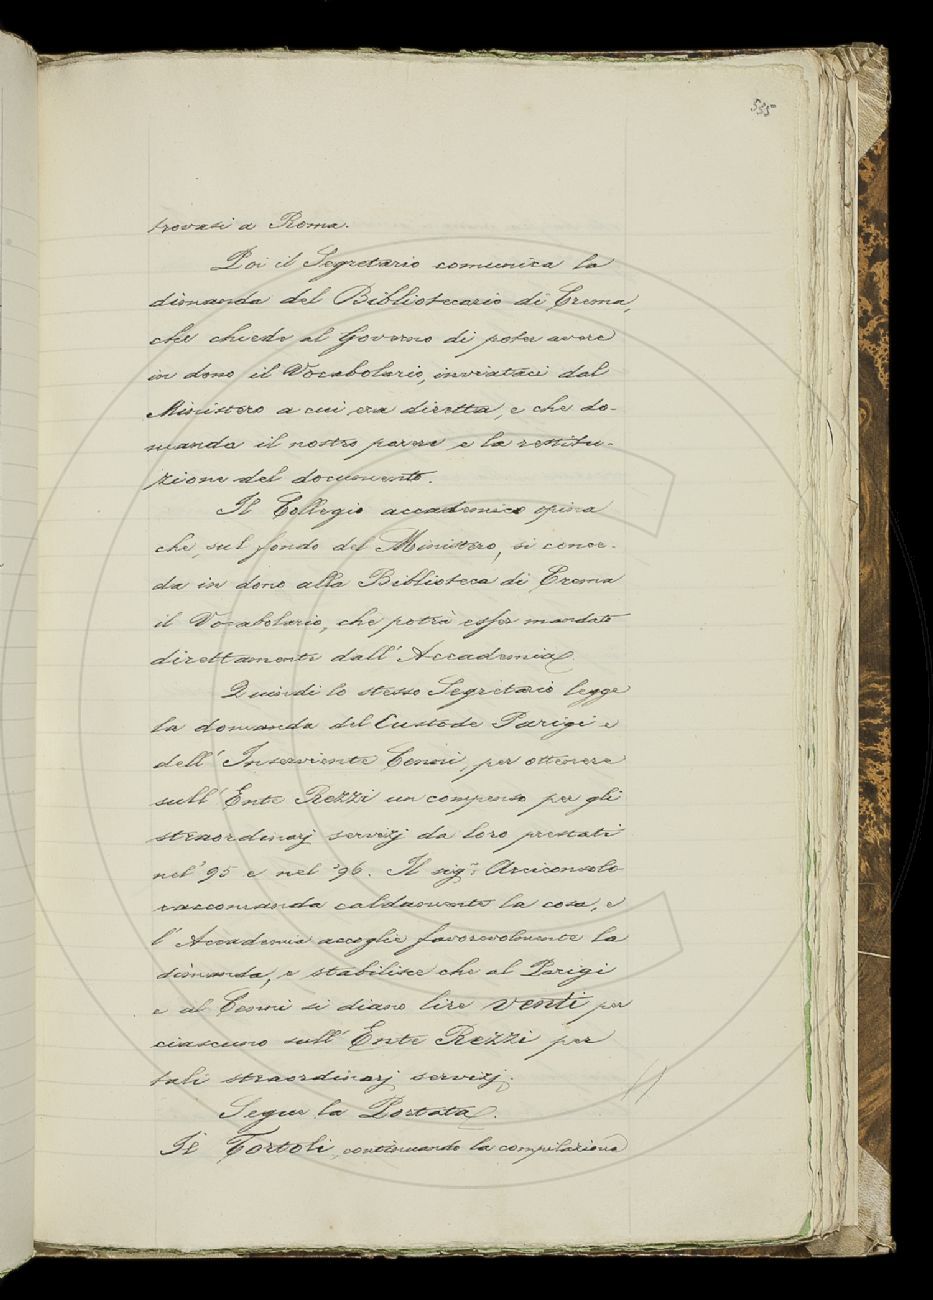 555
trovasi a Roma.
Poi il Segretario comunica la
dimanda del Bibliotecario di Crema,
che chiede al Governo di poter avere
in dono il Vocabolario, inviataci dal
Ministero a cui era diretta, e che do-
manda il nostro parere e la restitu-
zione del documento.
Il Collegio accademico opina
che, sul fondo del Ministero, si conce-
da in dono alla Biblioteca di Crema
il Vocabolario, che potrà esser mandato
direttamente dall'Accademia.
Quindi lo stesso Segretario legge
la domanda del Custode Parigi e
dell'Inserviente Cenni, per ottenere
sull'Ente Rezzi un compenso per gli
straordinarj servizj da loro prestati
nel '95 e nel '96. Il sigr. Arciconsolo
raccomanda caldamente la cosa, e
l'Accademia accoglie favorevolmente la
dimanda, e stabilisce che al Parigi
e al Cenni si diano lire venti per
ciascuno sull'Ente Rezzi per
tali straordinarj servizj.
Segue la Portata.
Il Tortoli, continuando la compilazione